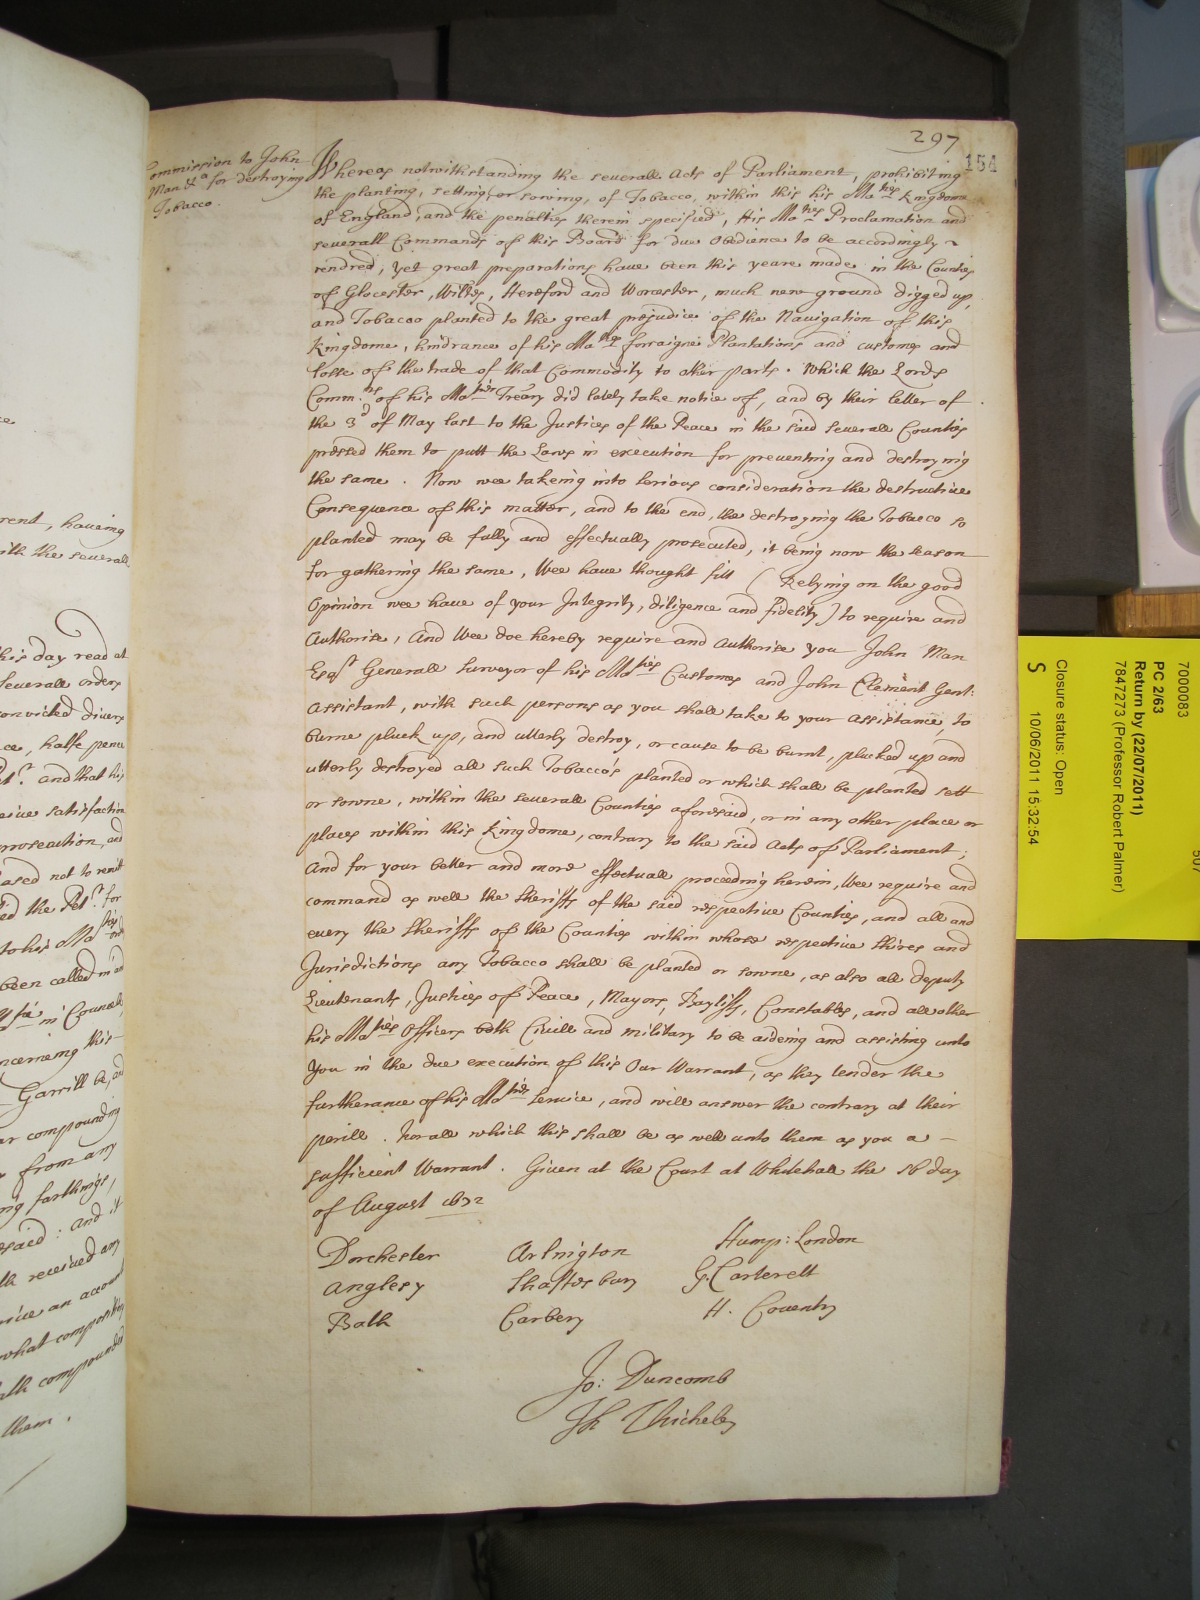 297
154
Commission to John
Man &ca for destroying
Tobacco.
Whereas notwithstanding the severall Acts of Parliament, prohibiting
the planting, setting, or sowing, of Tobacco, within this his Mats kingdome
of England, and the penalties therein specified, His Mats Proclamation and
severall Commands of this Board for due obedience to be accordingly
rendred, yet great preparations have been this yeare made in the Counties
of Glocester, Wilts, Hereford and Worcester, much new ground digged up,
and Tobacco planted to the great prejudice of the Navigation of this
kingdome, hindrance of his Mats forraigne Plantations and customes and
losse of the trade of that Commodity to other parts. Which the Lords
Commrs of his Mats Treāry did lately take notice of, and by their letter of
the 3d of May last to the Justices of the Peace in the said severall Counties
pressed them to putt the Laws in execution for preventing and destroying
the same. Now wee takeing into serious consideration the destructive
Consequence of this matter, and to the end, the destroying the Tobacco so
planted may be fully and effectually prosecuted, it being now the season
for gathering the same, Wee have thought fitt (Relying on the good
Opinion wee have of your Integrity, diligence and fidelity) to require and
Authorise, And Wee doe hereby require and Authorise you John Man
Esqr Generall Surveyor of his Maties Customes and John Clement Gent:
Assistant, with such persons as you shall take to your assistance, to
burne pluck up, and utterly destroy, or cause to be burnt, plucked up and
utterly destroyed all such Tobacco's planted or which shall be planted sett
or sowne, within the severall Counties aforesaid, or in any other place or
places within this kingdome, contrary to the said Acts of Parliament;
And for your better and more effectuall proceeding herein, Wee require and
command as well the Sheriffs of the said respective Counties, and all and
every the Sheriffs of the Counties within whose respective shires and
Jurisdictions any Tobacco shall be planted or sowne, as also all deputy
Lieutenants, Justices of Peace, Mayors, Bayliffs, Constables, and all other
his Maties Officers both Civill and military to be aideing and assisting unto
you in the due execution of this Our Warrant, as they tender the
furtherance of his Maties service, and will answer the contrary at their
perill. For all which this shall be as well unto them as you a
sufficient Warrant. Given at the Court at Whitehall the 16 day
of August 1672
Dorchester Arlington Hump: London
Anglesy Shaftesbury G. Carterett
Bath Carbery H. Coventry
Jo: Duncomb
Th Chicheley
rent, haveing
with the severall
this day read at
severall orders
convicted divers
halfe pence
and that his
satisfaction
prosecution, and
not to remitt
the Petr. for
to his Maties
been called in and
in Councell
concerning this
Garrill be, and
compounding
from any
farthings,
said: And it
received any
an account
what composition
compounded
them.
7000083
PC 2/63
Return by (22/07/2011)
7847273 (Professor Robert Palmer)
Closure status: Open
S 10/06/2011 15:32:54